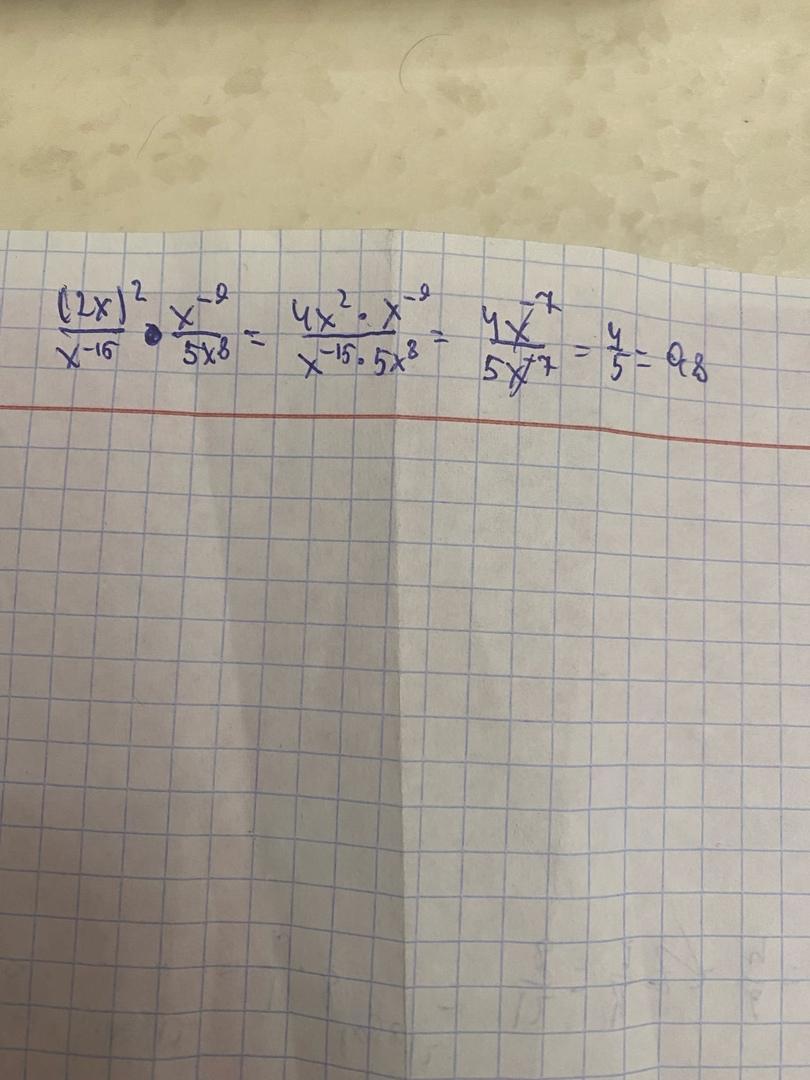 (2x)²/x⁻¹⁵ • x⁻⁹/5x⁸ = 4x² · x⁻⁹/x⁻¹⁵ · 5x⁸ = 4x⁻⁷/5x⁻⁷ = 4/5 = 0,8